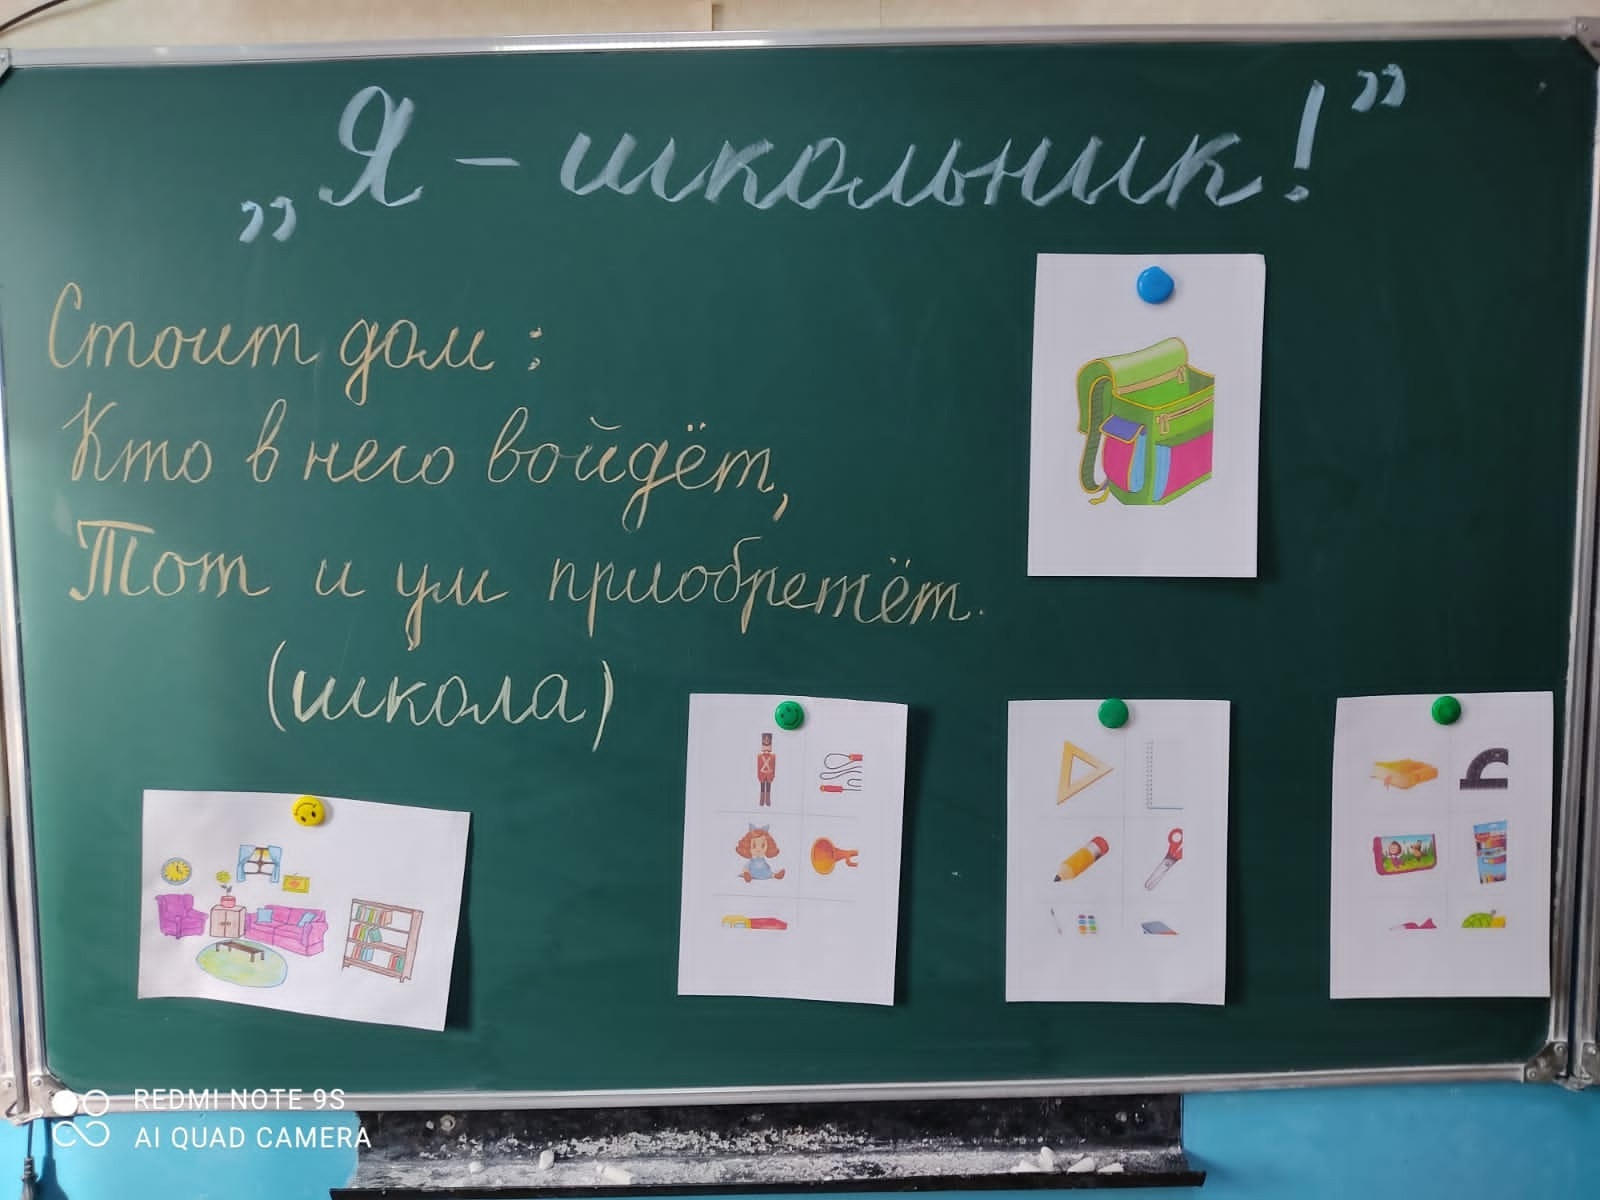 „Я - школьник!”
Стоит дом:
Кто в него войдёт,
Тот и ум приобретёт.
(школа)
REDMI NOTE 9S
AI QUAD CAMERA